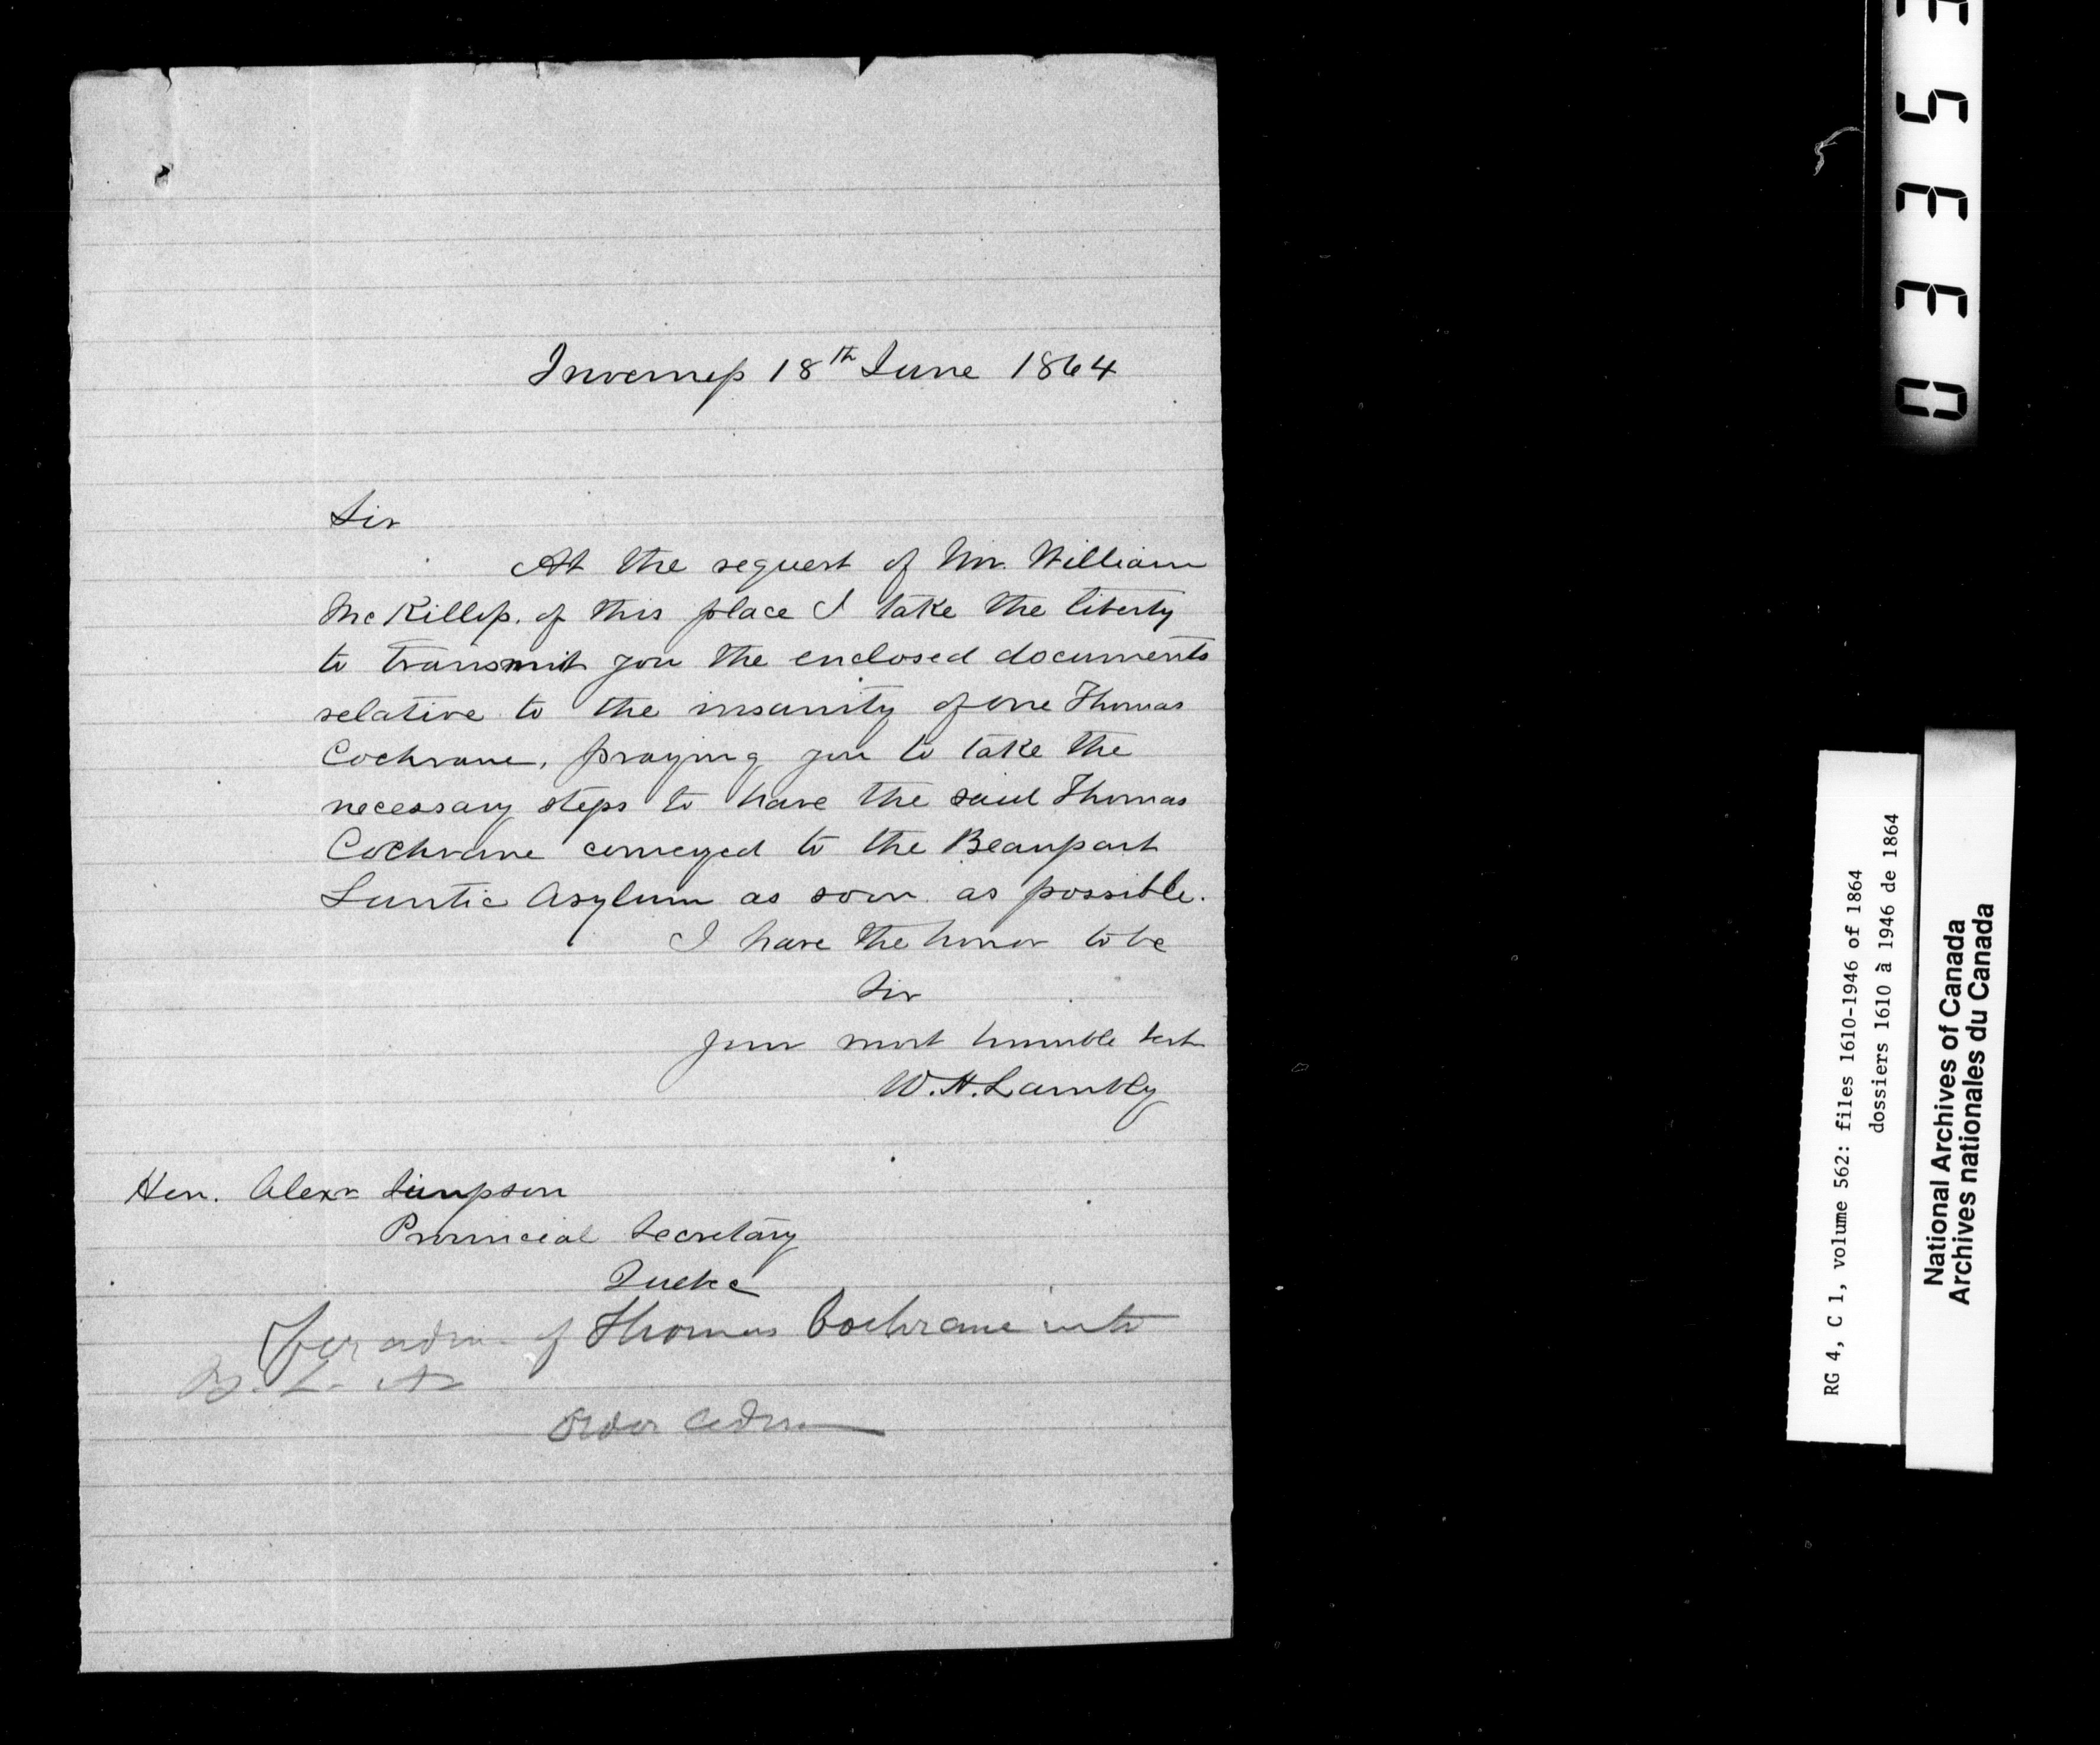 Inverness 18th June 1864
Sir
At the request of Mr. William
McKillop. of this place I take the liberty
to transmit you the enclosed documents
relative to the insanity of one Thomas
Cochrane, praying you to take the
necessary steps to have the said Thomas
Cochrane conveyed to the Beauport
Luntic Asylum as soon as possible.
I have the honor to be
Sir
Your most humble Sert
W. H. Lambly
Hon. Alexr Simpson
Provincial Secretary
Quebec
for adm. of Thomas Cochrane into
B. L. A
Order Adm.
03353
RG 4, C 1, volume 562: files 1610-1946 of 1864
dossiers 1610 à 1946 de 1864
National Archives of Canada
Archives nationales du Canada